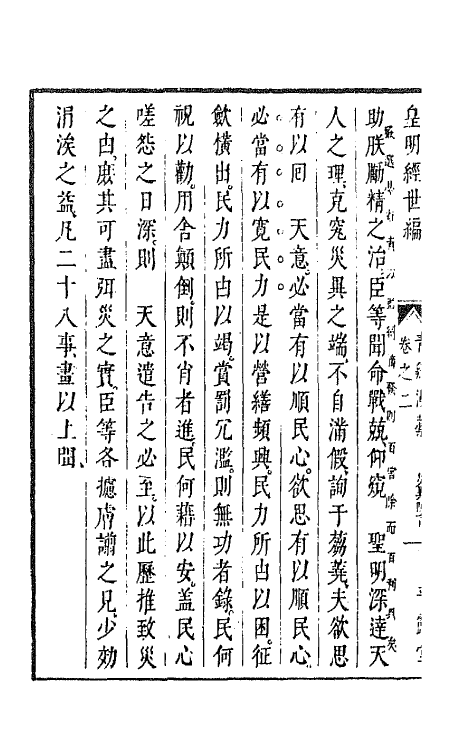 皇明經世編
卷之二
助朕勵精之治臣等聞命戰兢仰窺　聖明深達天
人之理克究災異之端不自滿假詢于蒭蕘夫欲思
有以回　天意必當有以順民心欲思有以順民心
必當有以寬民力是以營繕頻興民力所由以困征
歛橫出民力所由以竭賞罰冗濫則無功者錄民何
視以勸用舍顛倒則不肖者進民何藉以安盖民心
嗟怨之日深則　天意遣告之必至以此歷推致災
之由庶其可盡弭災之實臣等各攄膚謭之見少効
涓涘之益凡二十八事盡以上聞